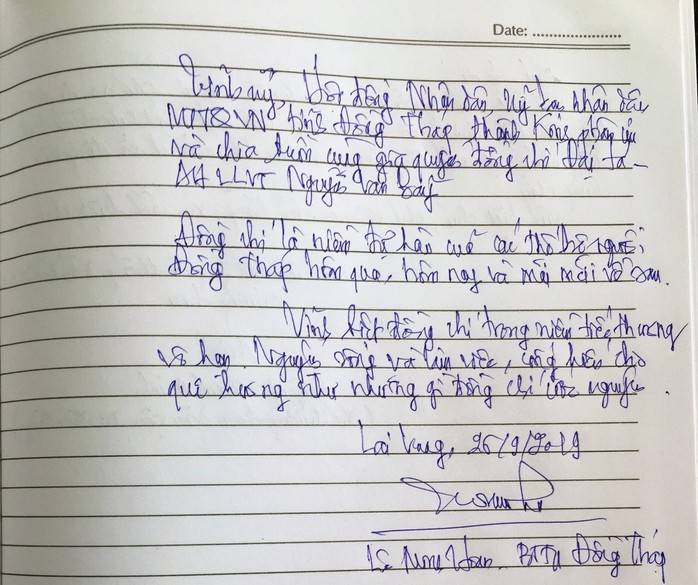 Date: ....................
Tỉnh uỷ, Hội đồng Nhân dân, Uỷ ban nhân dân,
MTTQVN tỉnh Đồng Tháp thành kính phân ưu
và chia buồn cùng gia quyến đồng chí Đại tá -
AH LLVT Nguyễn Văn Bảy
Đồng chí là niềm tự hào của các thế hệ người
Đồng Tháp hôm qua, hôm nay và mãi mãi về sau.
Vĩnh biệt đồng chí trong niềm tiếc thương
vô hạn. Nguyện sống và làm việc, cống hiến cho
quê hương như những gì đồng chí ước nguyện.
Lai Vung, 26/9/2019
Lê Minh Hoan. BTTU Đồng Tháp